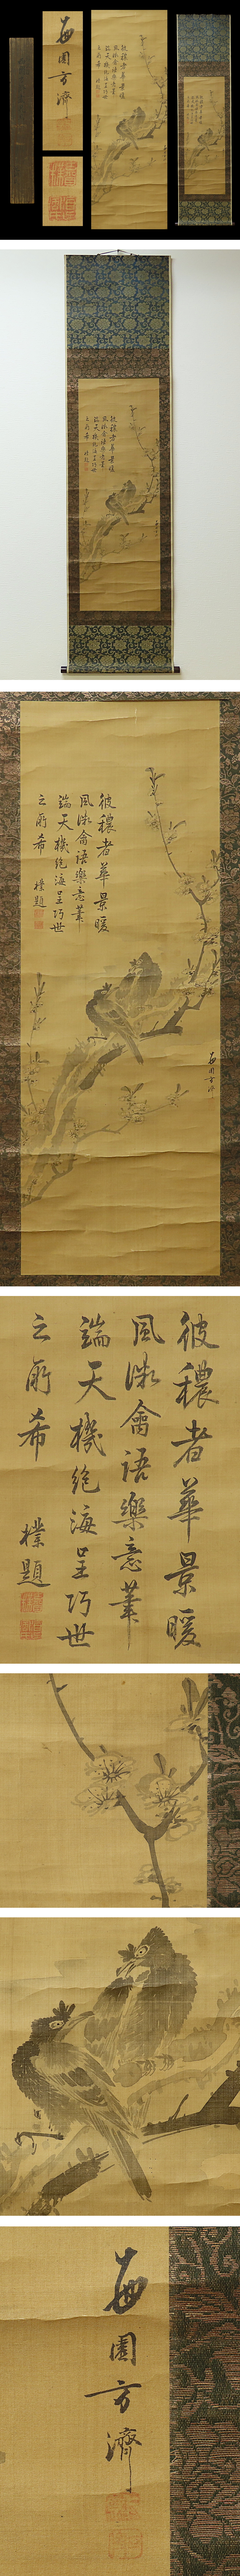 彼穠者華景暖
風微禽語樂意筆
端天機絶海呈巧世
之所希
樸題
每園方濟